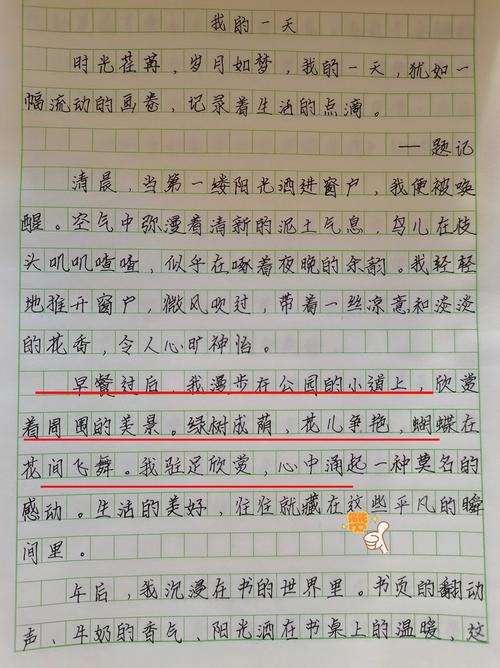 我的一天
时光荏苒，岁月如梦，我的一天，犹如一
幅流动的画卷，记录着生活的点滴。
——题记
清晨，当第一缕阳光洒进窗户，我便被唤
醒。空气中弥漫着清新的泥土气息，鸟儿在枝
头叽叽喳喳，似乎在啄着夜晚的余韵。我轻轻
地推开窗户，微风吹过，带着一丝凉意和淡淡
的花香，令人心旷神怡。
早餐过后，我漫步在公园的小道上，欣赏
着周围的美景。绿树成荫，花儿争艳，蝴蝶在
花间飞舞。我驻足欣赏，心中涌起一种莫名的
感动。生活的美好，往往就藏在这些平凡的瞬
间里。
午后，我沉漫在书的世界里。书页的翻动
声、牛奶的香气、阳光洒在书桌上的温暖，这